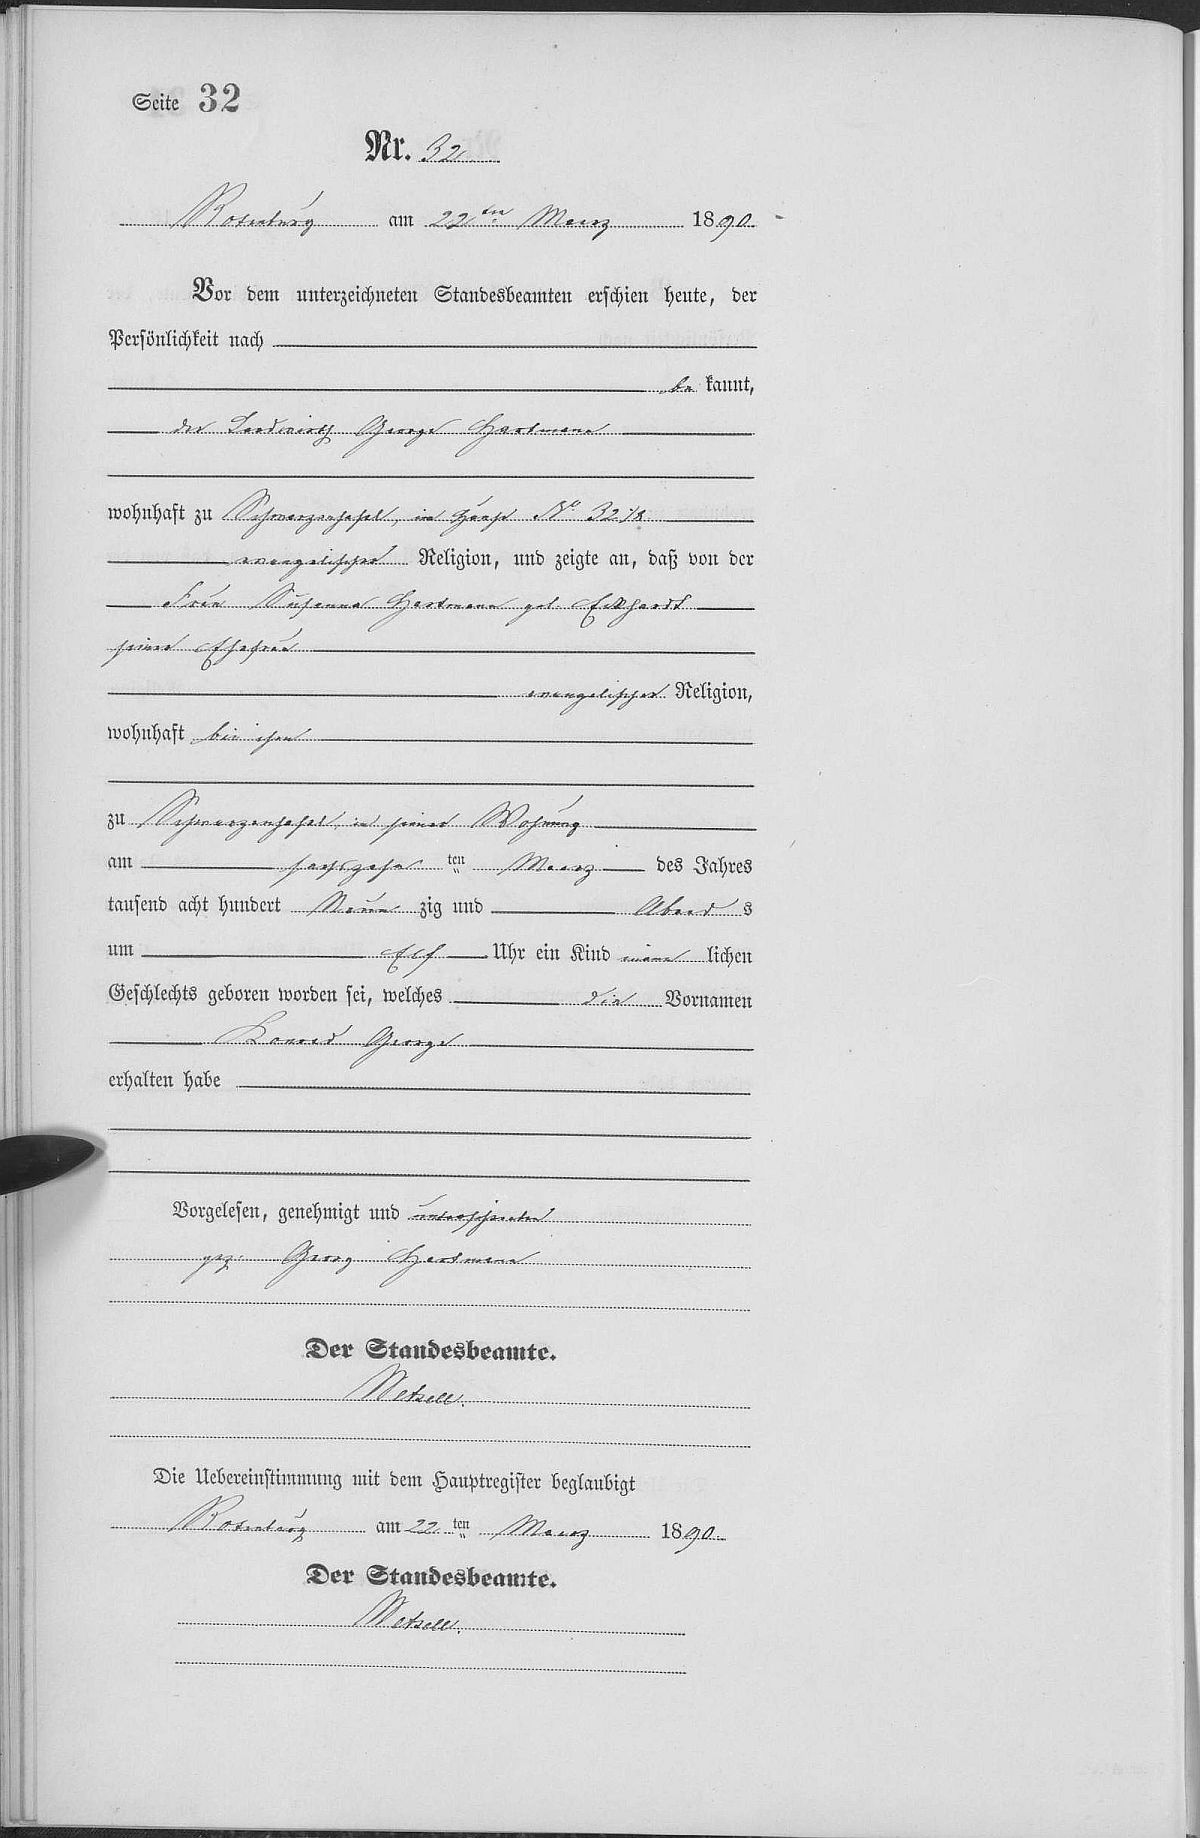 Seite 32
Nr. 32
Rotenburg am 22ten Maerz 1890
Vor dem unterzeichneten Standesbeamten erschien heute, der
Persönlichkeit nach
be kannt,
der Landwirth George Hartmann
wohnhaft zu Schwarzenhasel, in Hause No 32 1/2
evangelischer Religion, und zeigte an, daß von der
Frau Susanna Hartmann geb. Eckhardt
seiner Ehefrau
evangelischer Religion,
wohnhaft bei ihm
zu Schwarzenhasel, in seiner Wohnung
am sechszehn ten Maerz des Jahres
tausend acht hundert Neun zig und Abend s
um Elf Uhr ein Kind männ lichen
Geschlechts geboren worden sei, welches die Vornamen
Konrad George
erhalten habe
Vorgelesen, genehmigt und unterschrieben
gez. Georg Hartmann
Der Standesbeamte.
Die Uebereinstimmung mit dem Hauptregister beglaubigt
Rotenburg am 22 ten Maerz 1890.
Der Standesbeamte.